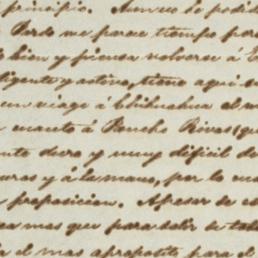 principio. Aun no he podido
Pardo me parece tiempo per
bien y piensa volverse á E
ligente y activo, tiene aquí su
un viage á Chihuahua el m
cuanto á Poncho Rivas (qu
duro y muy dificil de
y á la mano, por lo cua
proposicion. Apesar de es
mas que para salir de tal
el mas aproposito para el